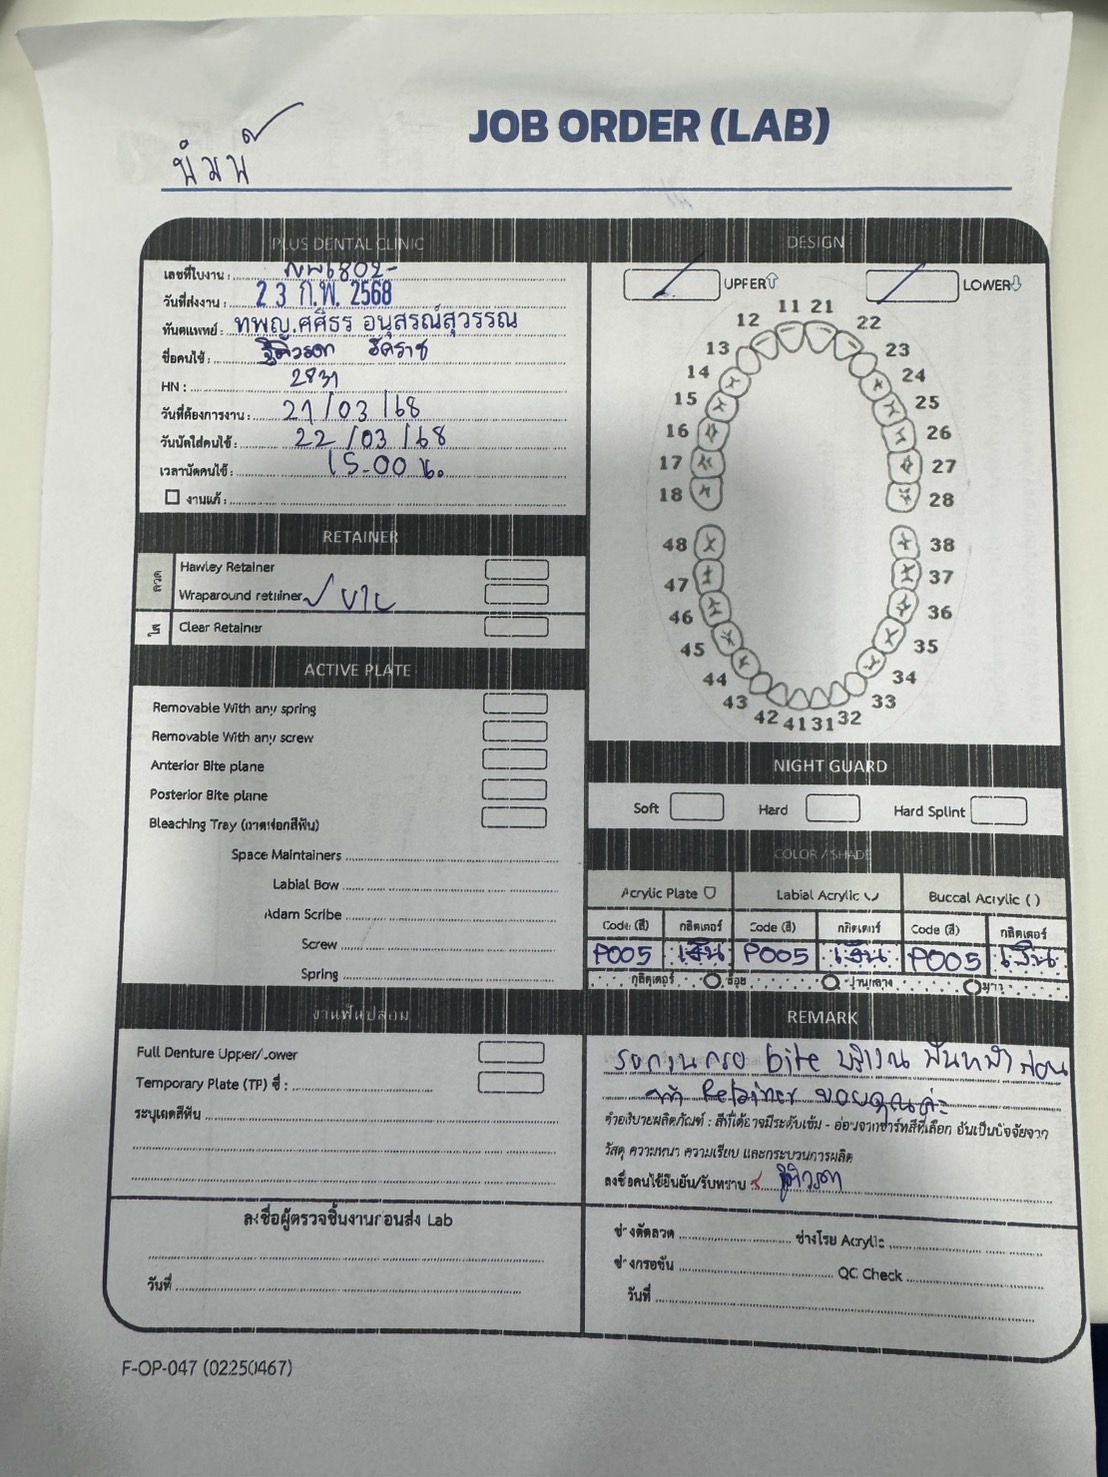 JOB ORDER (LAB)
พิมพ์
PLUS DENTAL CLINIC
เลขที่ใบงาน :
วันที่ส่งงาน : 23 ก.พ. 2568
ทันตแพทย์ : ทพญ.ศศิธร อนุสรณ์สุวรรณ
ชื่อคนไข้ :
HN : 2831
วันที่ต้องการงาน : 21/03/68
วันนัดใส่คนไข้ : 22/03/68
เวลานัดคนไข้ : 15.00 น.
งานแก้ :
RETAINER
ลวด
Hawley Retainer
Wraparound retainer ✓ บาง
ใส
Clear Retainer
ACTIVE PLATE
Removable With any spring
Removable With any screw
Anterior Bite plane
Posterior Bite plane
Bleaching Tray (ถาดฟอกสีฟัน)
Space Maintainers
Labial Bow
Adam Scribe
Screw
Spring
งานฟันปลอม
Full Denture Upper/Lower
Temporary Plate (TP) ซี่ :
ระบุเฉดสีฟัน
ลงชื่อผู้ตรวจชิ้นงานก่อนส่ง Lab
วันที่
DESIGN
UPPER⇧ LOWER⇩
11 21
12 22
13 23
14 24
15 25
16 26
17 27
18 28
48 38
47 37
46 36
45 35
44 34
43 33
42 41 31 32
NIGHT GUARD
Soft Hard Hard Splint
COLOR / SHADE
Acrylic Plate Labial Acrylic Buccal Acrylic ( )
Code (สี) กลิตเตอร์ Code (สี) กลิตเตอร์ Code (สี) กลิตเตอร์
P005 เงิน P005 เงิน P005 เงิน
กลิตเตอร์ น้อย ปานกลาง มาก
REMARK
รบกวนกรอ bite บริเวณ ฟันหน้า ก่อน
ทำ Retainer ขอบคุณค่ะ
คำอธิบายผลิตภัณฑ์ : สีที่ได้อาจมีระดับเข้ม - อ่อนจากชาร์ทสีที่เลือก อันเป็นปัจจัยจาก
วัสดุ ความหนา ความเรียบ และกระบวนการผลิต
ลงชื่อคนไข้ยืนยัน/รับทราบ
ช่างดัดลวด ช่างโรย Acrylic
ช่างกรอขัด QC Check
วันที่
F-OP-047 (02250467)